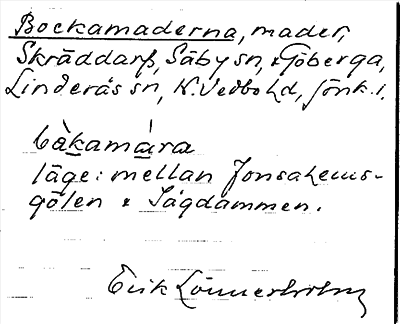 Bockamaderna, mader,
Skräddarp, Säby sn, & Göberga,
Linderås sn, N. Vedbo hd, Jönk. l.
bàkamàra
läge: mellan Jonsahems-
gölen & Sågdammen.
Erik Lönnerholm